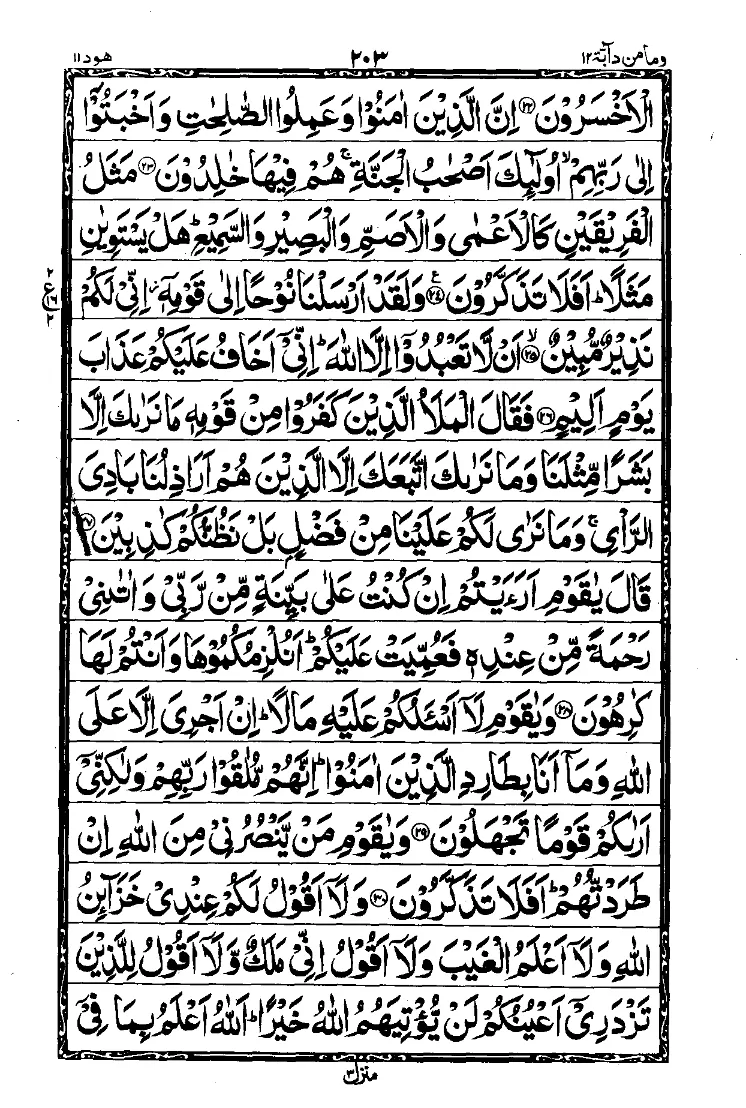 وما من دآبة ١٢
٢٠٣
هود ١١
الْاَخْسَرُوْنَ ﴿٢٢﴾ اِنَّ الَّذِيْنَ اٰمَنُوْا وَعَمِلُوا الصّٰلِحٰتِ وَاَخْبَتُوْۤا
اِلٰى رَبِّهِمْ ۙ اُولٰٓئِكَ اَصْحٰبُ الْجَنَّةِ ۚ هُمْ فِيْهَا خٰلِدُوْنَ ﴿٢٣﴾ مَثَلُ
الْفَرِيْقَيْنِ كَالْاَعْمٰى وَالْاَصَمِّ وَالْبَصِيْرِ وَالسَّمِيْعِ ؕ هَلْ يَسْتَوِيٰنِ
مَثَلًا ؕ اَفَلَا تَذَكَّرُوْنَ ﴿٢٤﴾ ع وَلَقَدْ اَرْسَلْنَا نُوْحًا اِلٰى قَوْمِهٖۤ ۫ اِنِّىْ لَكُمْ
٢ ع ١٦ ٢
نَذِيْرٌ مُّبِيْنٌ ﴿٢٥﴾ ۙ اَنْ لَّا تَعْبُدُوْۤا اِلَّا اللّٰهَ ؕ اِنِّىْۤ اَخَافُ عَلَيْكُمْ عَذَابَ
يَوْمٍ اَلِيْمٍ ﴿٢٦﴾ فَقَالَ الْمَلَاُ الَّذِيْنَ كَفَرُوْا مِنْ قَوْمِهٖ مَا نَرٰىكَ اِلَّا
بَشَرًا مِّثْلَنَا وَمَا نَرٰىكَ اتَّبَعَكَ اِلَّا الَّذِيْنَ هُمْ اَرَاذِلُنَا بَادِىَ
الرَّاْىِ ۚ وَمَا نَرٰى لَكُمْ عَلَيْنَا مِنْ فَضْلٍۭ بَلْ نَظُنُّكُمْ كٰذِبِيْنَ ﴿٢٧﴾
قَالَ يٰقَوْمِ اَرَءَيْتُمْ اِنْ كُنْتُ عَلٰى بَيِّنَةٍ مِّنْ رَّبِّىْ وَاٰتٰىنِىْ
رَحْمَةً مِّنْ عِنْدِهٖ فَعُمِّيَتْ عَلَيْكُمْ ؕ اَنُلْزِمُكُمُوْهَا وَاَنْتُمْ لَهَا
كٰرِهُوْنَ ﴿٢٨﴾ وَيٰقَوْمِ لَاۤ اَسْـَٔلُكُمْ عَلَيْهِ مَالًا ؕ اِنْ اَجْرِىَ اِلَّا عَلَى
اللّٰهِ وَمَاۤ اَنَا بِطَارِدِ الَّذِيْنَ اٰمَنُوْا ؕ اِنَّهُمْ مُّلٰقُوْا رَبِّهِمْ وَلٰكِنِّىْۤ
اَرٰىكُمْ قَوْمًا تَجْهَلُوْنَ ﴿٢٩﴾ وَيٰقَوْمِ مَنْ يَّنْصُرُنِىْ مِنَ اللّٰهِ اِنْ
طَرَدْتُّهُمْ ؕ اَفَلَا تَذَكَّرُوْنَ ﴿٣٠﴾ وَلَاۤ اَقُوْلُ لَكُمْ عِنْدِىْ خَزَآئِنُ
اللّٰهِ وَلَاۤ اَعْلَمُ الْغَيْبَ وَلَاۤ اَقُوْلُ اِنِّىْ مَلَكٌ وَّلَاۤ اَقُوْلُ لِلَّذِيْنَ
تَزْدَرِىْۤ اَعْيُنُكُمْ لَنْ يُّؤْتِيَهُمُ اللّٰهُ خَيْرًا ؕ اَللّٰهُ اَعْلَمُ بِمَا فِىْۤ
منزل ٣